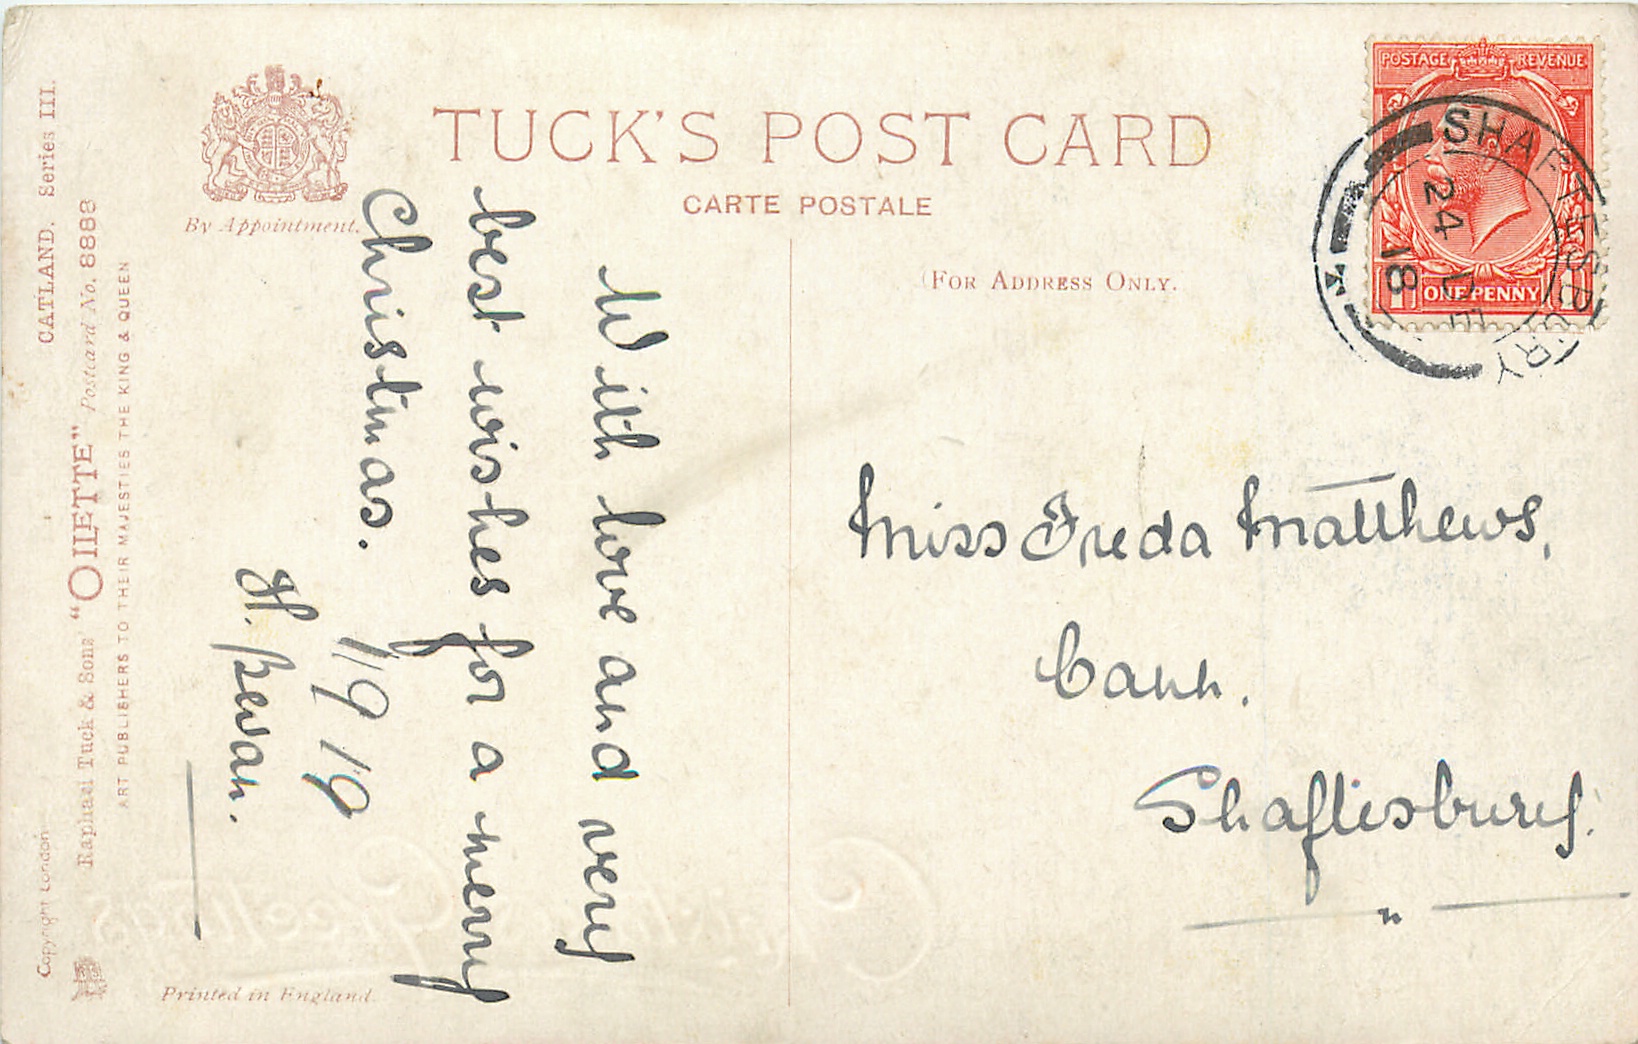 TUCK'S POST CARD
CARTE POSTALE
(FOR ADDRESS ONLY.
By Appointment.
CATLAND. Series III.
Raphael Tuck & Sons "OILETTE" Postcard No. 8888
ART PUBLISHERS TO THEIR MAJESTIES THE KING & QUEEN
Copyright London
Printed in England.
POSTAGE REVENUE
1 ONE PENNY 1
SHAFTESBURY
24 DE
18
With love and very
best wishes for a merry
Christmas.
H. Bevan.
Miss Freda Matthews,
Cann.
Shaftesbury.
Christmas Greetings